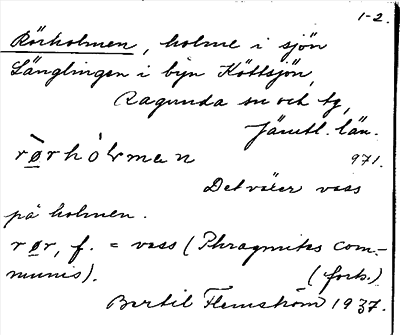 1-2.
Rörholmen, holme i sjön
Länglingen i byn Köttsjön,
Ragunda sn och tg,
Jämtl. län.
rø̀rhólmen 971.
Det växer vass
på holmen.
rør, f. = vass (Phragmites com-
munis). (forts.)
Bertil Flemström 1937.